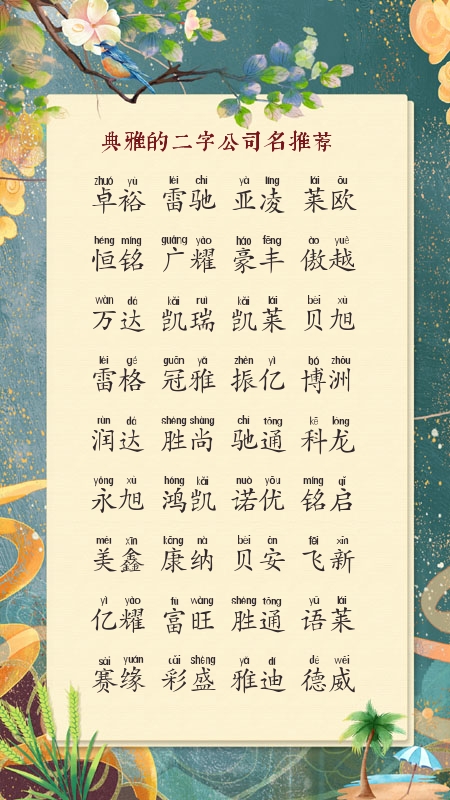 典雅的二字公司名推荐
zhuó yù léi chí yà líng lái ōu
卓裕 雷驰 亚凌 莱欧
héng míng guǎng yào háo fēng ào yuè
恒铭 广耀 豪丰 傲越
wàn dá kǎi ruì kǎi lái bèi xù
万达 凯瑞 凯莱 贝旭
léi gé guān yǎ zhèn yì bó zhōu
雷格 冠雅 振亿 博洲
rùn dá shèng shàng chí tōng kē lóng
润达 胜尚 驰通 科龙
yǒng xù hóng kǎi nuò yōu míng qǐ
永旭 鸿凯 诺优 铭启
měi xīn kāng nà bèi ān fēi xīn
美鑫 康纳 贝安 飞新
yì yào fù wàng shèng tōng yǔ lái
亿耀 富旺 胜通 语莱
sài yuán cǎi shèng yǎ dí dé wēi
赛缘 彩盛 雅迪 德威